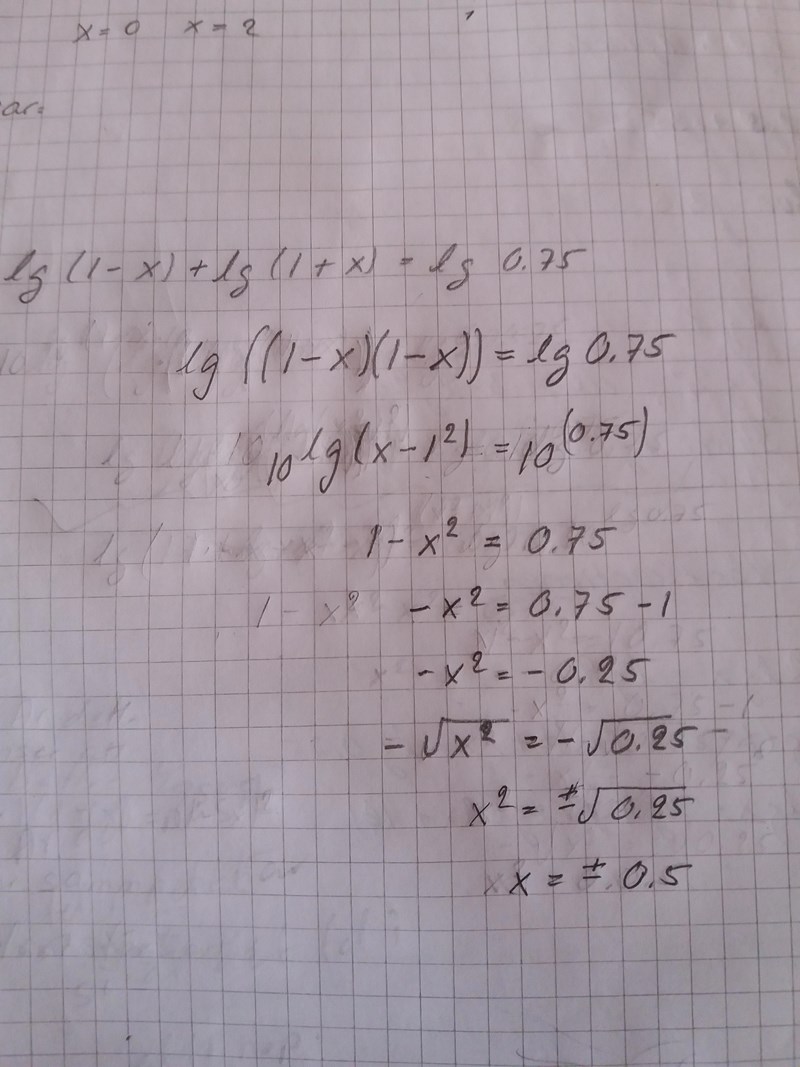 x = 0 x = 2
ar:
lg (1 - x) + lg (1 + x) = lg 0.75
lg ((1 - x)(1 - x)) = lg 0.75
10^lg(x - 1²) = 10^(0.75)
1 - x² = 0.75
1 - x² - x² = 0.75 - 1
- x² = - 0.25
- √x² = - √0.25
x² = ± √0.25
x = ± 0.5